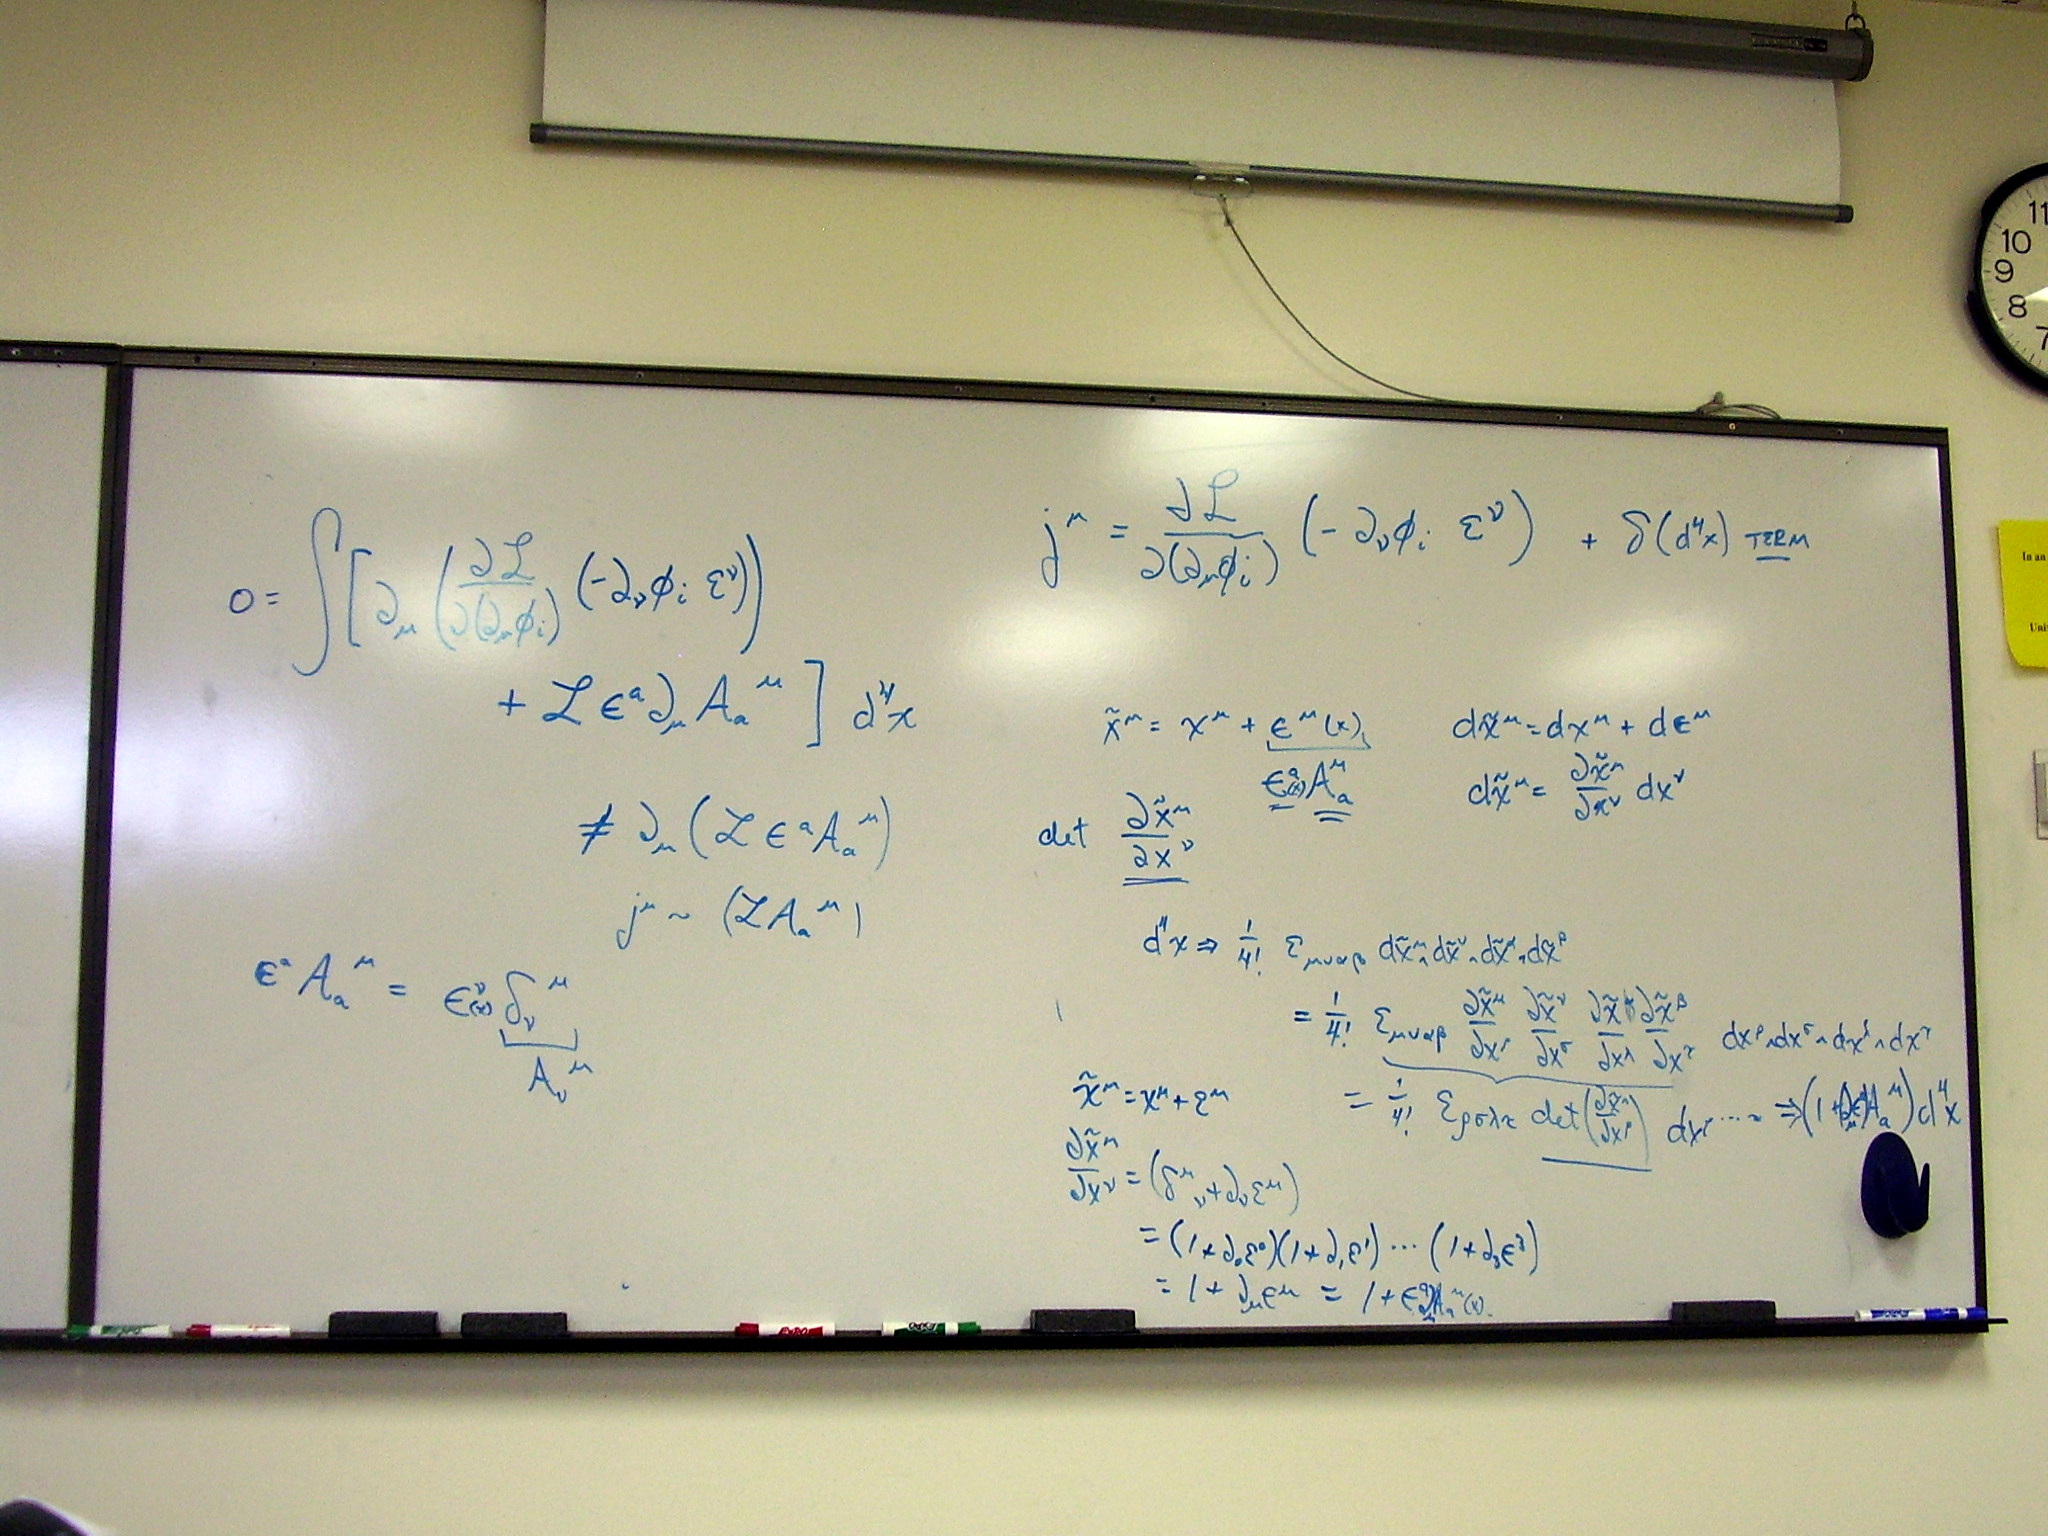 0 = ∫ [ ∂_μ ( ∂ℒ / ∂(∂_μ ϕ_i) (−∂_ν ϕ_i ε^ν) )
+ ℒ ϵ^a ∂_μ A_a^μ ] d^4x
≠ ∂_μ ( ℒ ϵ^a A_a^μ )
j^μ ~ (ℒ A_a^μ)
ϵ^a A_a^μ = ϵ^ν(x) δ_ν^μ
A_ν^μ
j^μ = ∂ℒ / ∂(∂_μ ϕ_i) (−∂_ν ϕ_i ε^ν) + δ(d^4x) TERM
x̃^μ = x^μ + ϵ^μ(x) dx̃^μ = dx^μ + dϵ^μ
ϵ^a(x) A_a^μ dx̃^μ = ∂x̃^μ/∂x^ν dx^ν
det ∂x̃^μ/∂x^ν
d^4x ⇒ 1/4! ε_μναβ dx̃^μ ∧ dx̃^ν ∧ dx̃^α ∧ dx̃^β
= 1/4! ε_μναβ ∂x̃^μ/∂x^ρ ∂x̃^ν/∂x^σ ∂x̃^α/∂x^λ ∂x̃^β/∂x^τ dx^ρ ∧ dx^σ ∧ dx^λ ∧ dx^τ
= 1/4! ε_ρσλτ det(∂x̃^μ/∂x^ρ) dx^ρ ... ⇒ (1+ A_a^μ) d^4x
x̃^μ = x^μ + ε^μ
∂x̃^μ/∂x^ν = (δ^μ_ν + ∂_ν ε^μ)
= (1+∂_0 ε^0)(1+∂_1 ε^1) ... (1+∂_3 ϵ^3)
= 1 + ∂_μ ϵ^μ = 1 + ϵ^a ∂_μ A_a^μ(x).
11
10
9
8
7
In an
Uni
EXPO